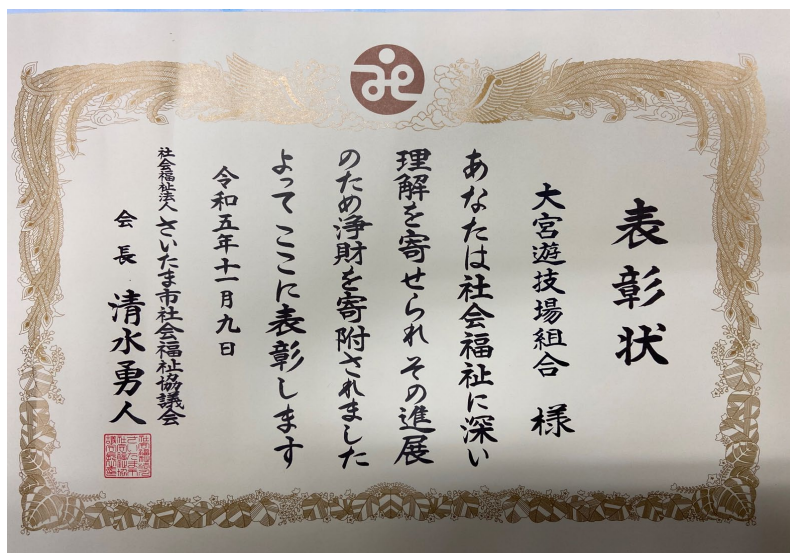 表彰状
大宮遊技場組合 様
あなたは社会福祉に深い
理解を寄せられ その進展
のため浄財を寄附されました
よって ここに表彰します
令和五年十一月九日
社会福祉法人 さいたま市社会福祉協議会
会長 清水勇人